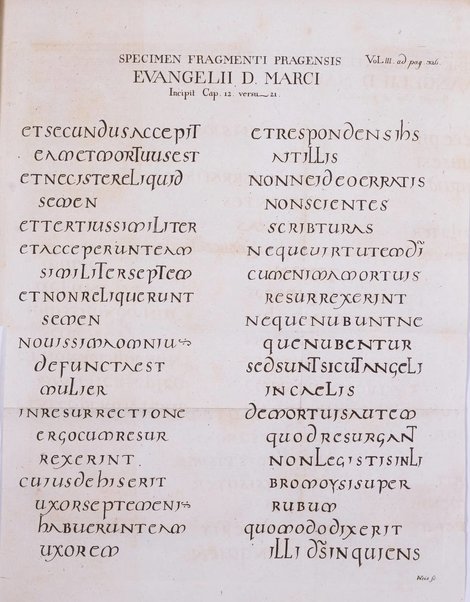 SPECIMEN FRAGMENTI PRAGENSIS
Vol. III. ad pag.
EVANGELII D. MARCI
Incipit Cap. 12. versu 21.
etsecundusaccepit
eametmortuusest
etnecistereliquid
semen
ettertiussimiliter
etacceperunteam
similiterseptem
etnonreliquerunt
semen
nouissimaomniu
defunctaest
mulier
inresurrectione
ergocumresur
rexerint
cuiusdehiserit
uxorseptemeni
habuerunteam
uxorem
etrespondensihs
aitillis
nonneideoerratis
nonscientes
scribturas
nequeuirtutemdi
cumenimamortuis
resurrexerint
nequenubuntne
quenubentur
sedsuntsicutangeli
incaelis
demortuisautem
quodresurgant
nonlegistisinli
bromoysisuper
rubum
quomododixerit
illidsinquiens